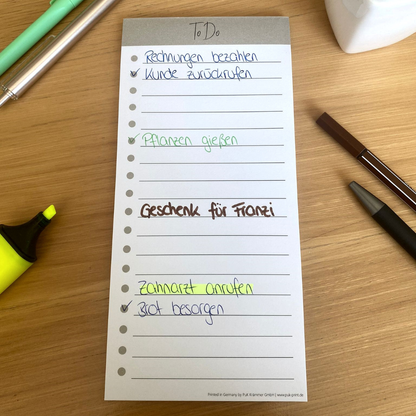 To Do
Rechnungen bezahlen
Kunde zurückrufen
Pflanzen gießen
Geschenk für Franzi
Zahnarzt anrufen
Brot besorgen
Printed in Germany by